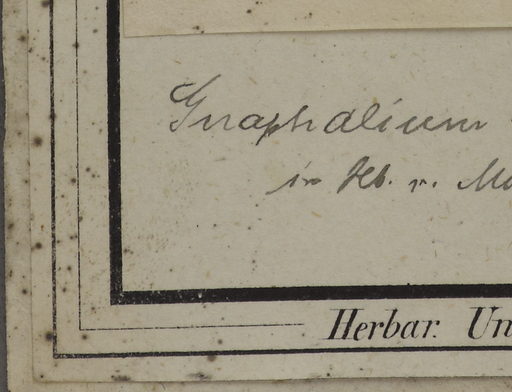 Gnaphalium
in hb. v. Mu
Herbar. Un